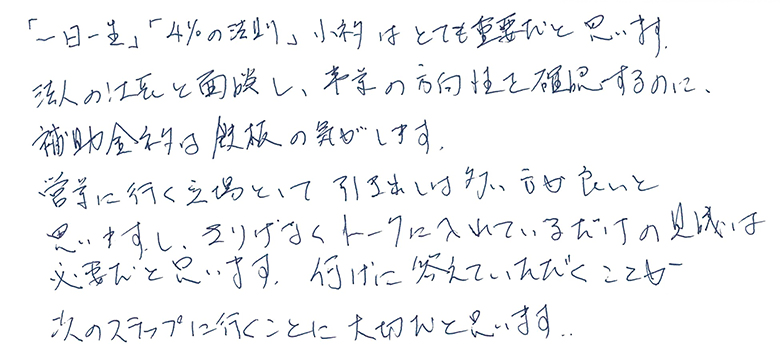 「一日一生」「4％の法則」小ネタはとても重要だと思います。
法人の社長と面談し、事業の方向性を確認するのに、
補助金ネタは鉄板の気がします。
営業に行く立場として引き出しは多い方が良いと
思いますし、さりげなくトークに入れているだけの見識は
必要だと思います。何げに答えていただくことも
次のステップに行くことに大切だと思います..